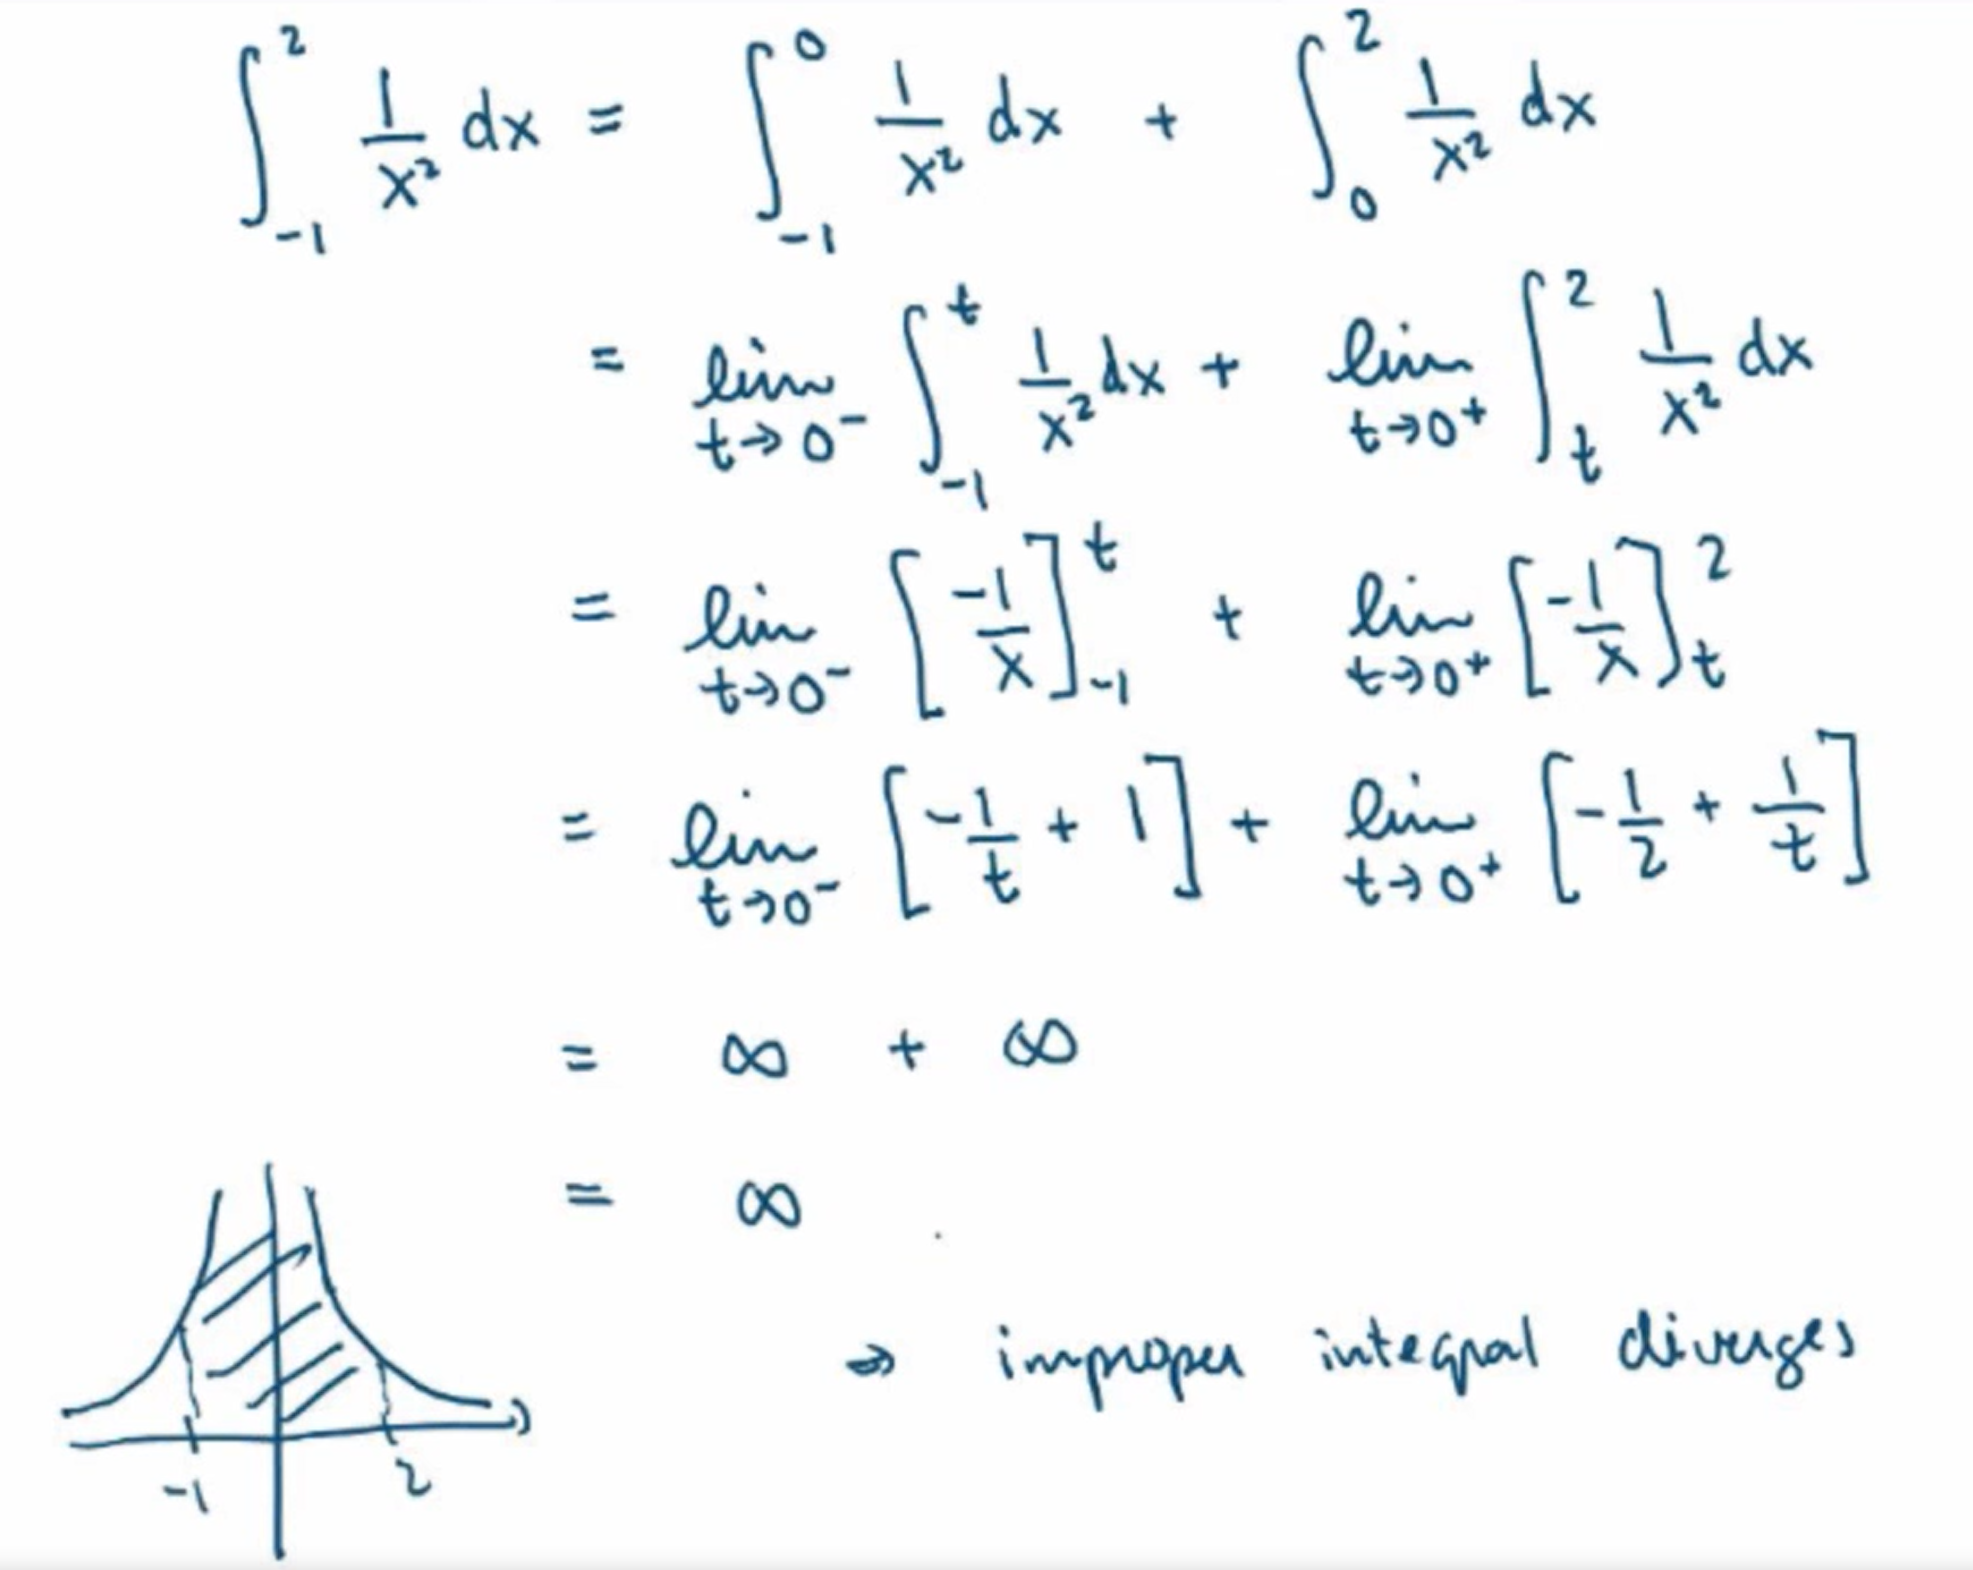 ∫_{-1}^{2} 1/x² dx = ∫_{-1}^{0} 1/x² dx + ∫_{0}^{2} 1/x² dx
= lim_{t→0⁻} ∫_{-1}^{t} 1/x² dx + lim_{t→0⁺} ∫_{t}^{2} 1/x² dx
= lim_{t→0⁻} [-1/x]_{-1}^{t} + lim_{t→0⁺} [-1/x]_{t}^{2}
= lim_{t→0⁻} [-1/t + 1] + lim_{t→0⁺} [-1/2 + 1/t]
= ∞ + ∞
= ∞
⇒ improper integral diverges
-1 2